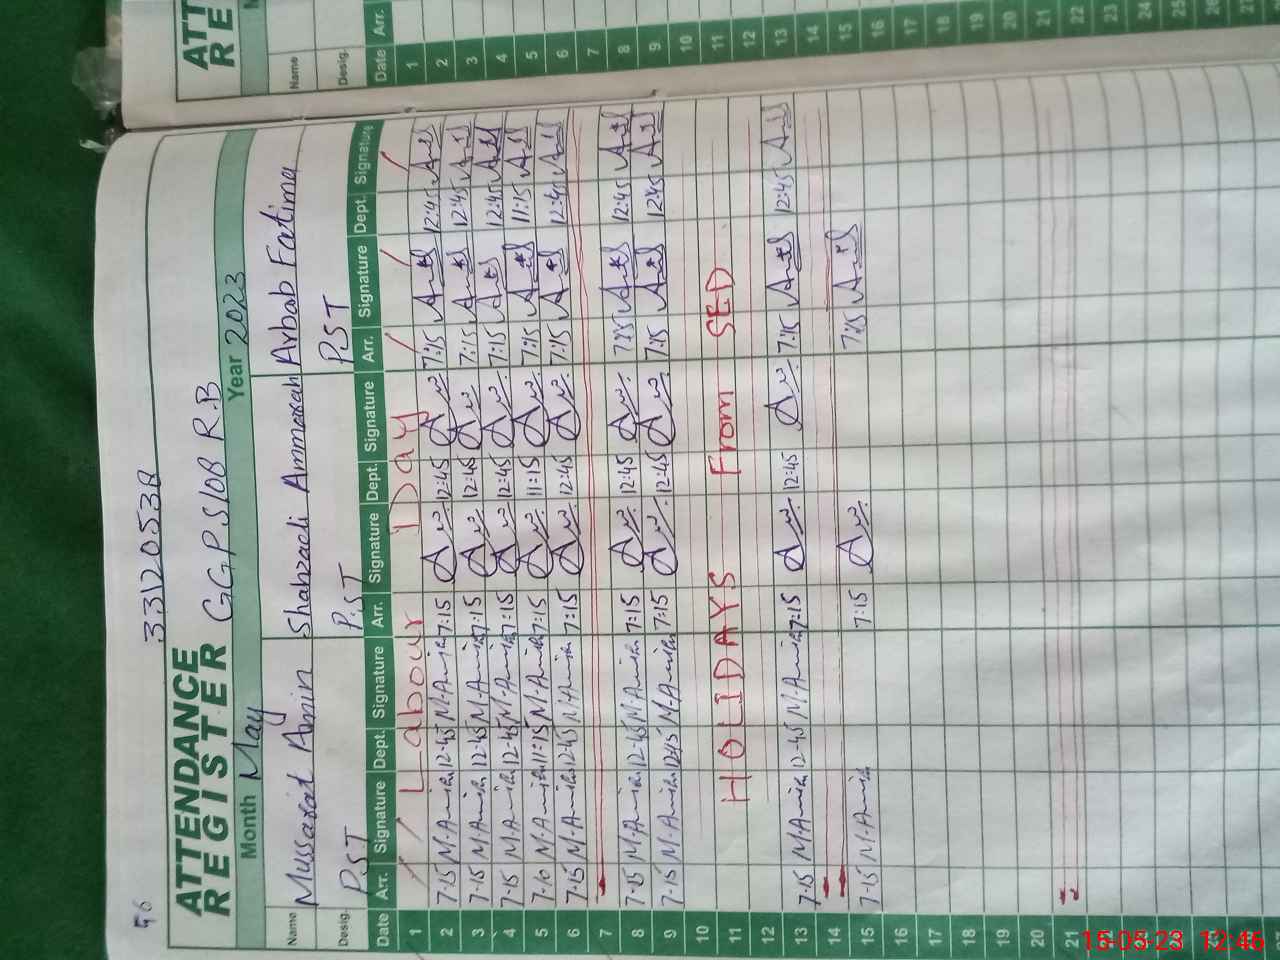 33120538
56
ATTENDANCE REGISTER
GGPS 108 R.B
Month May Year 2023
Name Mussarat Amin Shahzadi Ammarah Arbab Fatima
Desig. PST P.ST P.S T
Date Arr. Signature Dept. Signature Arr. Signature Dept. Signature Arr. Signature Dept. Signature
1 Labour Day
2 7-15 M.Amin 12-45 M.Amin 7:15 12:45 7:15 12:45
3 7-15 M.Amin 12-45 M.Amin 7:15 12:45 7:15 12:45
4 7-15 M.Amin 12-45 M.Amin 7:15 12:45 7:15 12:45
5 7-10 M.Amin 11:15 M.Amin 7:15 11:15 7:15 11:15
6 7-15 M.Amin 12-45 M.Amin 7:15 12:45 7:15 12:45
7
8 7-15 M.Amin 12-45 M.Amin 7:15 12:45 7:15 12:45
9 7-15 M.Amin 12-45 M.Amin 7:15 12:45 7:15 12:45
10
11 HOLIDAYS From SED
12
13 7-15 M.Amin 12-45 M.Amin 7:15 12:45 7:15 12:45
14
15 7-15 M.Amin 7:15 7:15
16
17
18
19
20
21
22
23
24
25
ATT
RE
Name
Desig.
Date Arr.
1
2
3
4
5
6
7
8
9
10
11
12
13
14
15
16
17
18
19
20
21
22
23
24
25
26
27
15-05-23 12:46